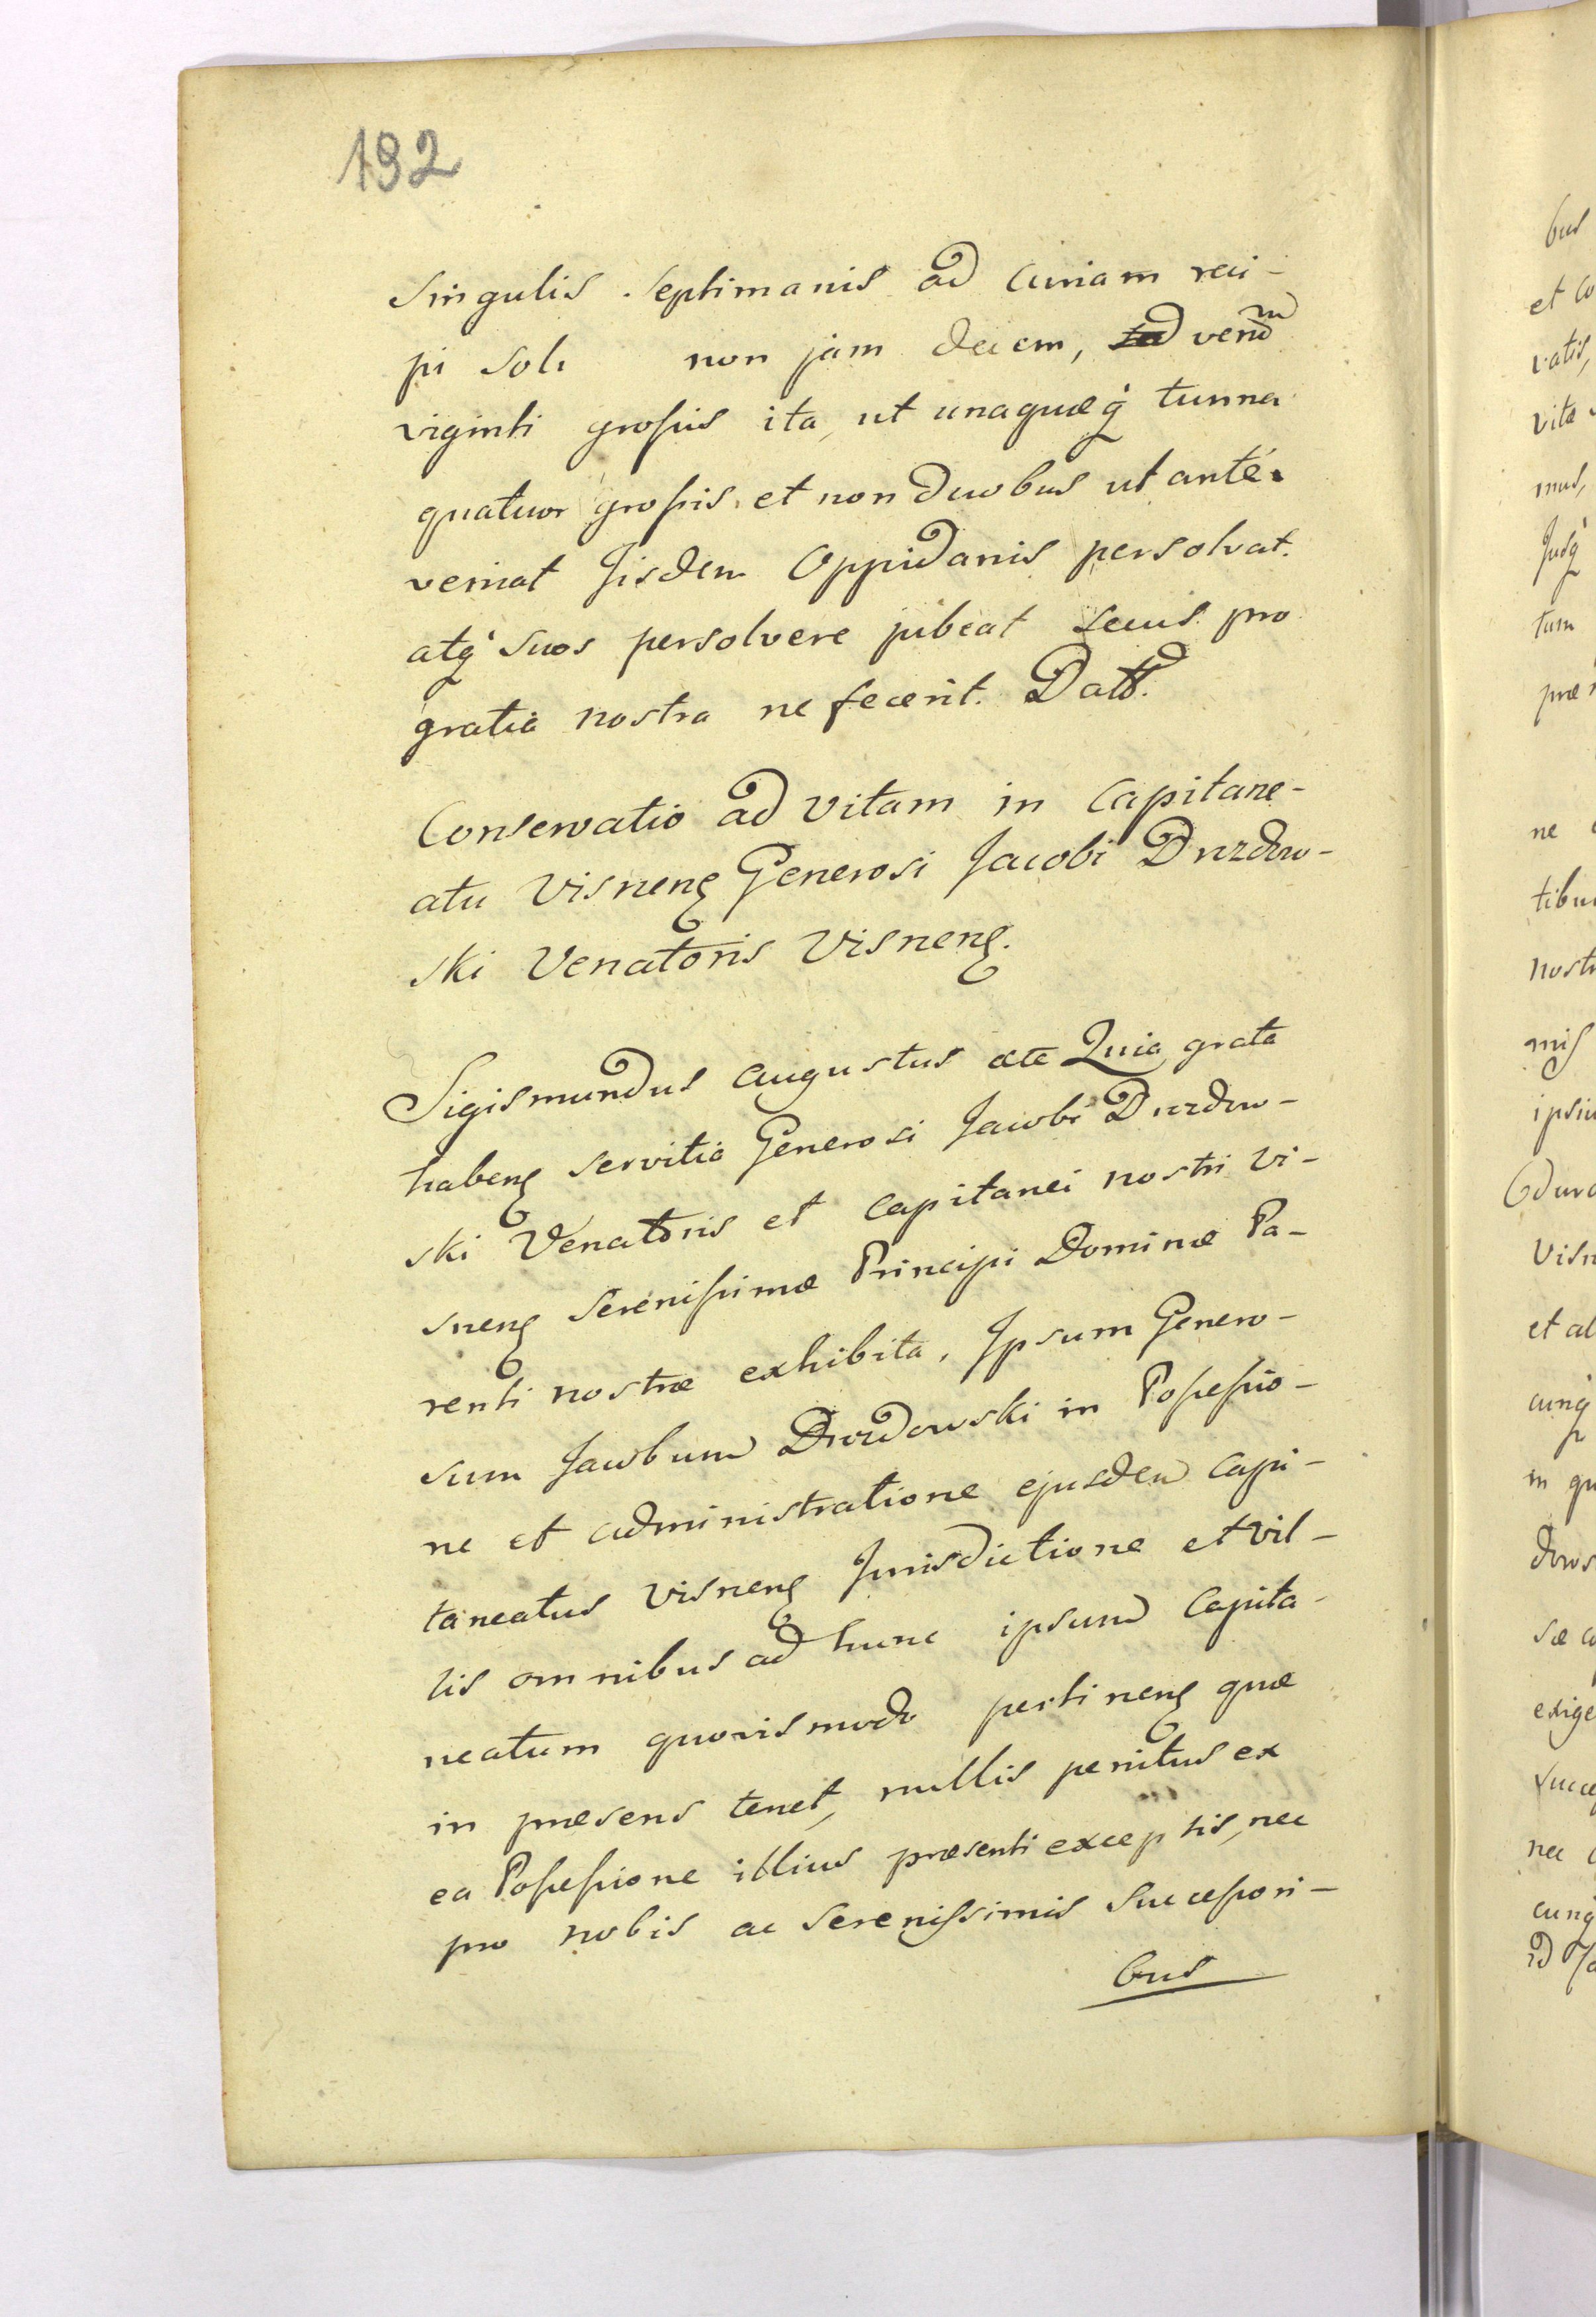 192
Singulis Septimanis ad Curiam reci-
pi soli non jam decem, verum
viginti grossis ita, ut unaquaeq́ tunna
quatuor grossis et non duobus ut ante
veniat Iisdem Oppidanis persolvat.
atq́ suos persolvere jubeat secus pro
gratia nostra ne fecerit. Datt.
Conservatio ad vitam in Capitane-
atu Visneng Generosi Jacobi Drozdow-
ski Venatoris Visneng.
Sigismundus Augustus etc Quia grata
habeng servitia Generosi Jacobi Drozdow-
ski Venatoris et Capitanei nostri Vi-
sneng Serenissimae Principi Dominae Pa-
renti nostrae exhibita, Ipsum Genero-
sum Jacobum Drozdowski in Possessio-
ne et administratione ejusdem Capi-
taneatus Visneng Jurisdictione et Vil-
lis omnibus ad hunc ipsum Capita-
neatum quovismodo pertineng quae
in praesens tenet, nullis penitus ex
ea Possessione illius praesenti exceptis, nec
pro nobis ac Serenissimis Successori-
bus